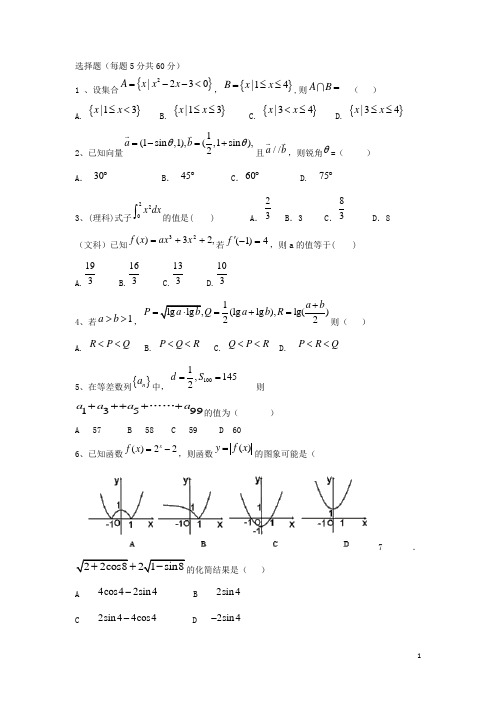 选择题（每题5分共60分）
1 、设集合 A={x| x²-2x-3<0}， B={x|1≤x≤4} ,则 A∩B= （ ）
A. {x|1≤x<3} B. {x|1≤x≤3} C. {x|3<x≤4} D. {x|3≤x≤4}
2、已知向量 a=(1-sinθ,1), b=(1/2,1+sinθ), 且 a//b ，则锐角θ=（ ）
A． 30° B． 45° C．60° D． 75°
3、(理科)式子 ∫₀² x²dx 的值是( ) A． 2/3 B．3 C． 8/3 D．8
（文科）已知 f(x)=ax³+3x²+2, 若 f′(-1)=4，则 a 的值等于( )
A. 19/3 B. 16/3 C. 13/3 D. 10/3
4、若 a>b>1，P=√(lg a·lg b), Q=1/2(lg a+lg b), R=lg((a+b)/2) 则（ ）
A. R<P<Q B. P<Q<R C. Q<P<R D. P<R<Q
5、在等差数列{aₙ}中， d=1/2, S₁₀₀=145 则
a₁+a₃++a₅+……+a₉₉的值为（ ）
A 57 B 58 C 59 D 60
6、已知函数 f(x)=2ˣ-2，则函数 y=|f(x)| 的图象可能是（
y 1 -1 O 1 x y 1 -1 O 1 x y 1 -1 O 1 x y 1 -1 O 1 x
A B C D 7 .
√(2+2cos8)+2√(1-sin8)的化简结果是（ ）
A 4cos4-2sin4 B 2sin4
C 2sin4-4cos4 D -2sin4
1